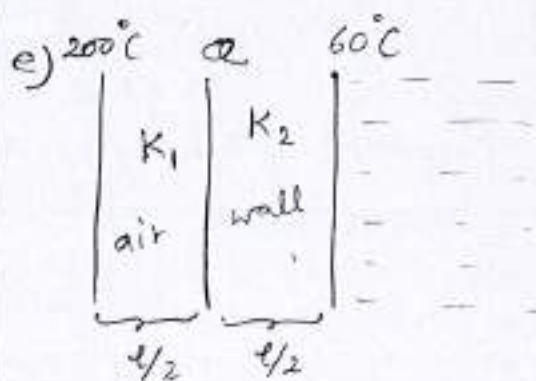 e) 200°C 60°C
K₁ K₂
air wall
l/2 l/2